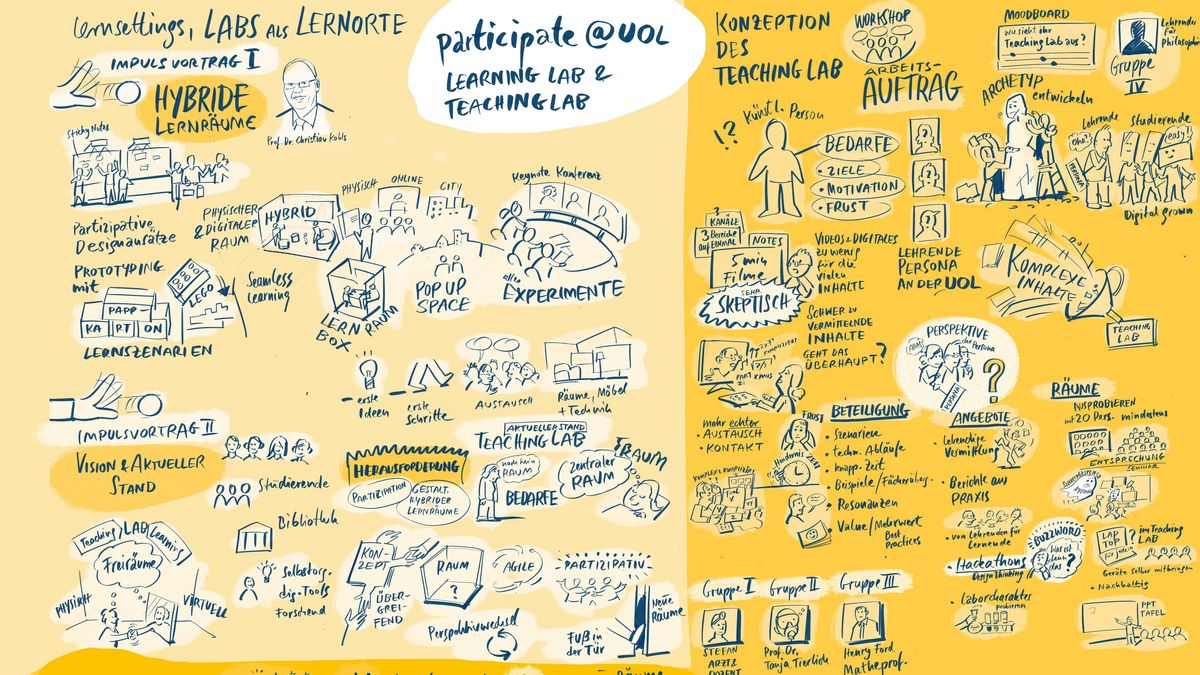 Lernsettings, LABS ALS LERNORTE
IMPULSVORTRAG I
HYBRIDE
LERNRÄUME
Prof. Dr. Christian Kohls
participate @UOL
LEARNING LAB &
TEACHING LAB
Sticky Notes
Participative
Designansätze
PROTOTYPING
mit
PAPP-
KA RT ON
LEGO
LERNSZENARIEN
Seamless
Learning
PHYSISCHER
& DIGITALER
RAUM
HYBRID
PHYSISCH
ONLINE
CITY
LERNRAUM
BOX
POP UP
SPACE
Keynote Konferenz
alle EXPERIMENTE
erste
Ideen
erste
Schritte
AUSTAUSCH
Räume, Möbel
+ Technik
IMPULSVORTRAG II
VISION & AKTUELLER
STAND
Studierende
Bibliothek
Selbstorg.
dig. Tools
Forschend
Teaching LAB Learning
Freiräume
PHYSISCH
VIRTUELL
HERAUSFORDERUNG
PARTIZIPATION
GESTALT.
HYBRIDER
LERNRÄUME
AKTUELLER STAND
TEACHING LAB
noch kein
RAUM
BEDARFE
zentraler
RAUM
TRAUM
KON-
ZEPT
ÜBER-
GREI-
FEND
RAUM
?
AGILE
PARTIZIPATIV
Perspektivwechsel
FUß in
der Tür
Neue
RÄUME
RÄUME
KONZEPTION
DES
TEACHING LAB
WORKSHOP
ARBEITS-
AUFTRAG
MOODBOARD
Wie sieht ihr
Teaching Lab aus?
Lehrender
für
Philosophie
Gruppe
IV
!?
Künstl. Person
BEDARFE
• ZIELE
• MOTIVATION
• FRUST
LEHRENDE
PERSONA
AN DER UOL
ARCHETYP
entwickeln
Lehrende
Studierende
Oha!
PERSONA
easy!
Digital grown
3
KANÄLE
3 Bereiche
auf EINMAL
NOTES
5 min
Filme
SEHR
SKEPTISCH
VIDEOS & DIGITALES
zu wenig
für die
vielen
INHALTE
SCHWER ZU
VERMITTELNDE
INHALTE
GEHT DAS
ÜBERHAUPT?
KOMPLEXE
INHALTE
TEACHING
LAB
FRUST
mehr echter
• AUSTAUSCH
• KONTAKT
PERSPEKTIVE
der Persona
PERSONA
?
BETEILIGUNG
• Szenarien
• techn. Abläufe
• knapp. Zeit
• Beispiele/Fächerübug.
• Resonanzen
• Value/Mehrwert
Best
Practices
ANGEBOTE
• Lebendige
Vermittlung
• Berichte aus
PRAXIS
• von Lehrenden für
Lernende
• Hackathons
Design Thinking
• Laborcharakter
probieren
BUZZWORD
Was ist
denn
das?
RÄUME
AUSPROBIEREN
mit 20 Pers. mindestens
ENTSPRECHUNG
SEMINAR
LAP
TOP
für jede/n
im Teaching
LAB
Geräte selber mitbringen
• Nachhaltig
PPT
TAFEL
Gruppe I
STEFAN
ARZT &
DOZENT
Gruppe II
Prof. Dr.
Tanja Tierlich
Gruppe III
Henry Ford
Matheprof.